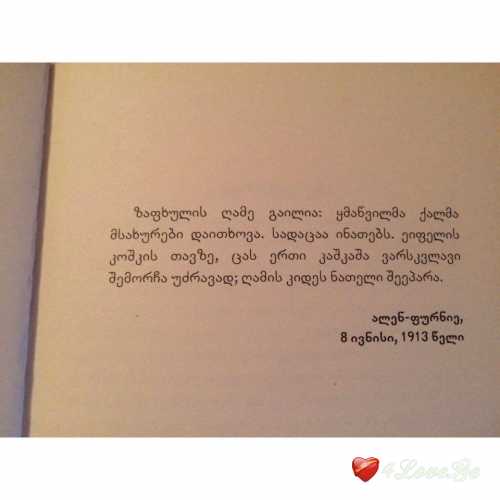 ზაფხულის ღამე გაილია: ყმაწვილმა ქალმა
მსახურები დაითხოვა. სადაცაა ინათებს. ეიფელის
კოშკის თავზე, ცას ერთი კაშკაშა ვარსკვლავი
შემორჩა უძრავად; ღამის კიდეს ნათელი შეეპარა.
ალენ-ფურნიე,
8 ივნისი, 1913 წელი
4Love.Ge